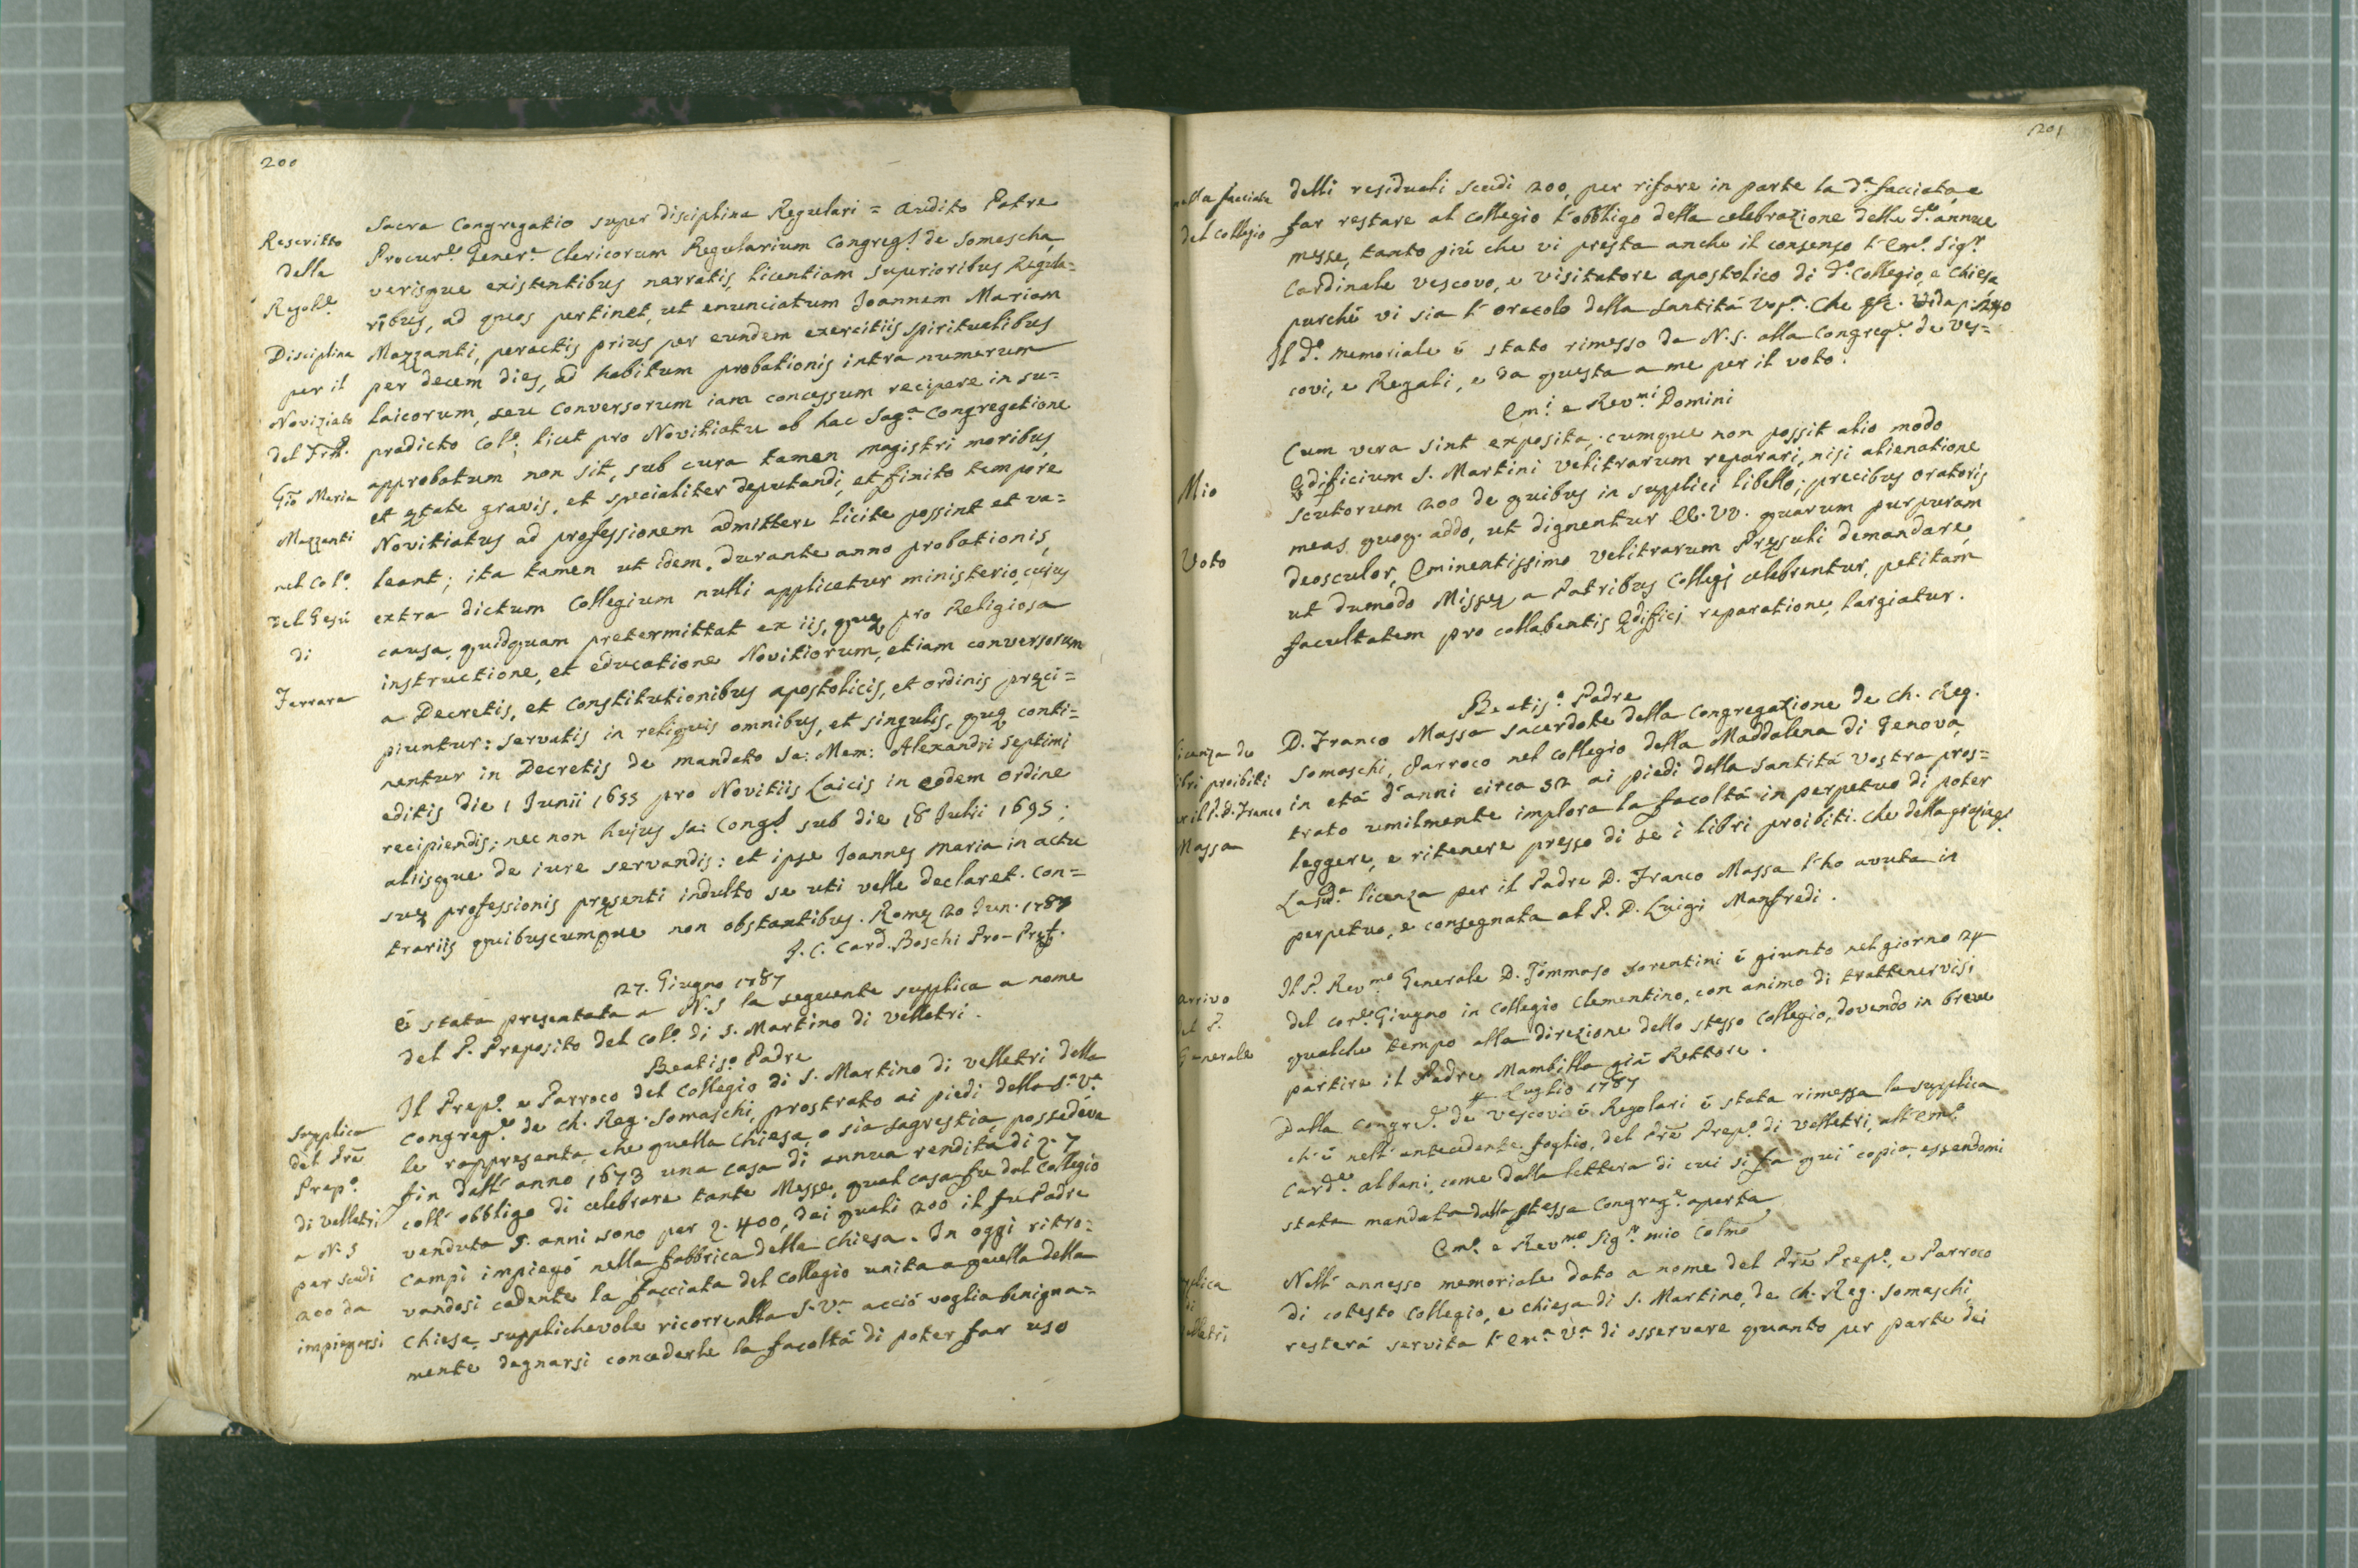 200
Rescritto
della
Regol.e
Disciplina
per il
Noviziato
del Frat.
Gio Maria
Mazzanti
nel Col.o
del Gesù
di
Ferrara
Sacra Congregatio super disciplina Regulari = audito Patre
Procur.e Gener.e Clericorum Regularium Congreg.s de Somascha
verisque existentibus narratis, licentiam superioribus Regula=
ribus, ad quos pertinet, ut enunciatum Joannem Mariam
Mazzanti, peractis prius per eundem exercitiis spiritualibus
per decem dies, ad habitum probationis intra numerum
laicorum, seu conversorum iam concessum recipere in su=
pradicto Col.o; licet pro Novitiatu ab hac Sag.a Congregatione
approbatum non sit, sub cura tamen magistri moribus,
et ętate gravis, et specialiter deputandi, et finito tempore
Novitiatus ad professionem admittere licite possint et va=
leant; ita tamen ut idem, durante anno probationis,
extra dictum Collegium nulli applicetur ministerio, cujus
causa, quidquam pretermittat ex iis, quę pro Religiosa
instructione, et educatione Novitiorum, etiam conversorum
a Decretis, et constitutionibus apostolicis, et ordinis pręci=
piuntur: servatis in reliquis omnibus, et singulis, quę conti=
nentur in Decretis de mandato Sa: Mem: Alexandri septimi
editis die 1 Junii 1655 pro Novitiis Laicis in eodem ordine
recipiendis; nec non hujus Sa: Cong.s sub die 18 Julii 1695;
aliisque de iure servandis: et ipse Joannes Maria in actu
suę professionis pręsenti indulto se uti velle declaret. Con=
trariis quibuscumque non obstantibus. Romę 20 Jun. 1787
J. C. Card. Boschi Pro-Pręf.
27. Giugno 1787
È stata presentata a N.S la seguente supplica a nome
del P. Preposito del Col.o di S. Martino di Velletri.
Beatis.o Padre
Supplica
del Prē
Prep.o
di Velletri
a N.S
per scudi
200 da
impiegarsi
Il Prep.o e Parroco del Collegio di S. Martino di Velletri della
Congreg.e de Ch. Reg. Somaschi, prostrato ai piedi della S.a V.a
le rappresenta, che quella Chiesa, o sia sagrestia, possedéva
fin dall' anno 1673 una casa di annua rendita di 2. 7
coll' obbligo di celebrare tante Messe, qual casa fu dal Collegio
venduta 5. anni sono per 2. 400, dei quali 200 il fu Padre
Campi impiegò nella fabbrica della Chiesa. In oggi ritro=
vandosi cadente la facciata del Collegio unita a quella della
Chiesa supplichevole ricorre alla S. V.a acciò voglia benigna=
mente degnarsi concederle la facoltà di poter far uso
201
nella facciata
del Collegio
delli residuali scudi 200, per rifare in parte la d.a facciata, e
far restare al Collegio l' obbligo della celebrazione delle d.e annue
messe, tanto più che vi presta anche il consenso l' Em.o Sig.r
Cardinale Vescovo, e visitatore apostolico di d.o Collegio, e Chiesa
purchè vi sia l' oracolo della Santità Vos.a Che
Il d.o memoriale è stato rimesso da N.S. alla Congreg.e de Ves=
covi, e Regali, e da questa a me per il voto.
Em.i e Rev.mi Domini
Mio
Voto
Cum vera sint exposita, cumque non possit alio modo
Ędificium S. Martini Velitrarum reparari, nisi alienatione
scutorum 200 de quibus in supplici libello; precibus oratoris
meas quoq. addo, ut dignentur EE. VV. quarum purpuram
deosculor, Eminentissimo Velitrarum Pręsuli demandare,
ut dumodo Missę a Patribus Collegj celebrentur, petitam
facultatem pro collabentis Ędificj reparatione, largiatur.
Beatis.o Padre
licenza de
libri proibiti
per il P. D. Franco
Massa
D. Franco Massa sacerdote della Congregazione de Ch. Reg.
Somaschi, Parroco nel Collegio della Maddalena di Genova,
in età d' anni circa 52 ai piedi della Santità Vostra pros=
trato umilmente implora la facoltà in perpetuo di poter
leggere, e ritenere presso di se i libri proibiti. Che della grazia
La sud.a licenza per il Padre D. Franco Massa l' ho avuta in
perpetuo, e consegnata al P. D. Luigi Manfredi.
arrivo
del P.
Generale
Il P. Rev.mo Generale D. Tommaso Sorentini è giunto nel giorno 24
del cor.e Giugno in Collegio Clementino, con animo di trattenervisi
qualche tempo alla direzione dello stesso Collegio, dovendo in breve
partire il Padre Mambilla già Rettore.
4 Luglio 1787
Dalla Congr.e de Vescovi è Regolari è stata rimessa la supplica
ch' è nell' antecedente foglio, del Prē Prep.o di Velletri, all' Em.o
Card.e Albani, come dalla lettera di cui si fa qui copia, essendomi
stata mandata dalla stessa Congreg.e aperta
Em.o e Rev.mo Sig.r mio Colmo
supplica
di
Velletri
Nell' annesso memoriale dato a nome del Prē Prep.o, e Parroco
di cotesto Collegio, e chiesa di S. Martino, de Ch. Reg. Somaschi
resterà servita l' Em.a V.a di osservare quanto per parte dei